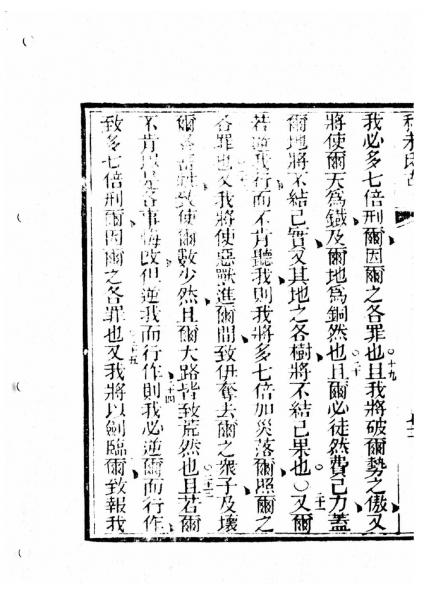 我必多七倍刑爾因爾之各罪也○十九且我將破爾勢之傲又
將使爾天爲鐵及爾地爲銅然也○二十且爾必徒然費己力蓋
爾地將不結己實又其地之各樹將不結己果也○○二十一又爾
若逆我行而不肯聽我則我將多七倍加災落爾照爾之
各罪也又我將使惡獸進爾間致伊奪去爾之衆子及壞
爾各畜致使爾數少然且爾大路皆致荒然也○二十三且若爾
不肯各事悔改但逆我而行作二十四則我必逆爾而行作
致多七倍刑爾因爾之各罪也二十五又我將以劍臨爾致報我